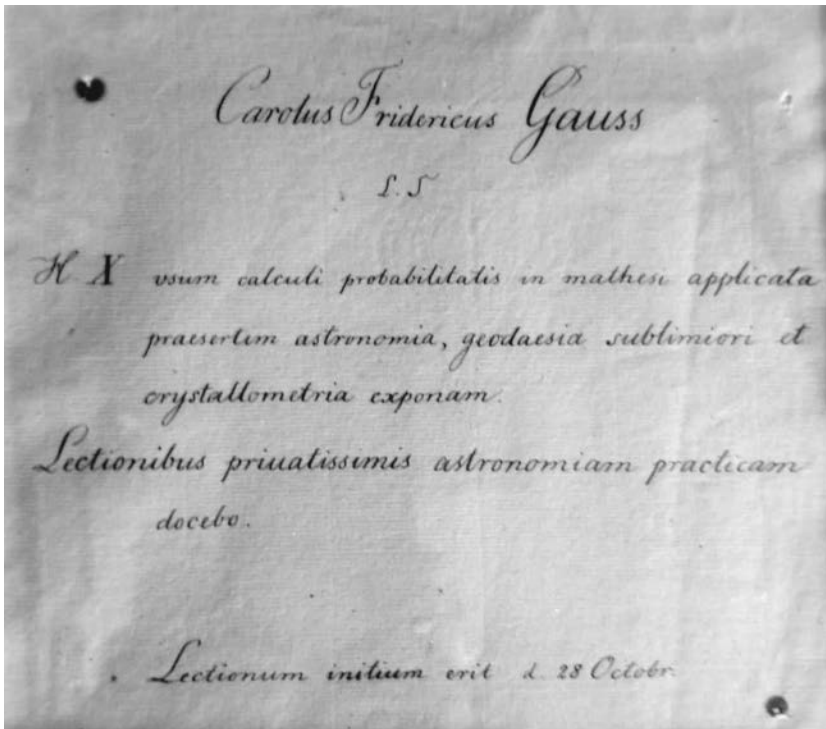 Carolus Fridericus Gauss
L. S
H X usum calculi probabilitatis in mathesi applicata
praesertim astronomia, geodaesia sublimiori et
crystallometria exponam.
Lectionibus priuatissimis astronomiam practicam
docebo.
Lectionum initium erit d. 28 Octobr.